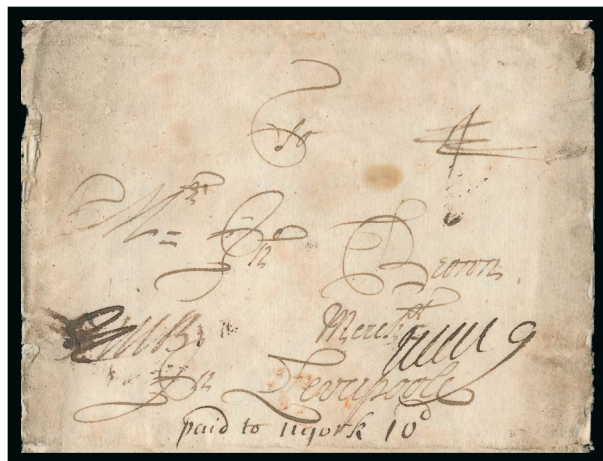 To
Mr Jno Brown
Mercht
In Leverpoole
paid to nyork 10d